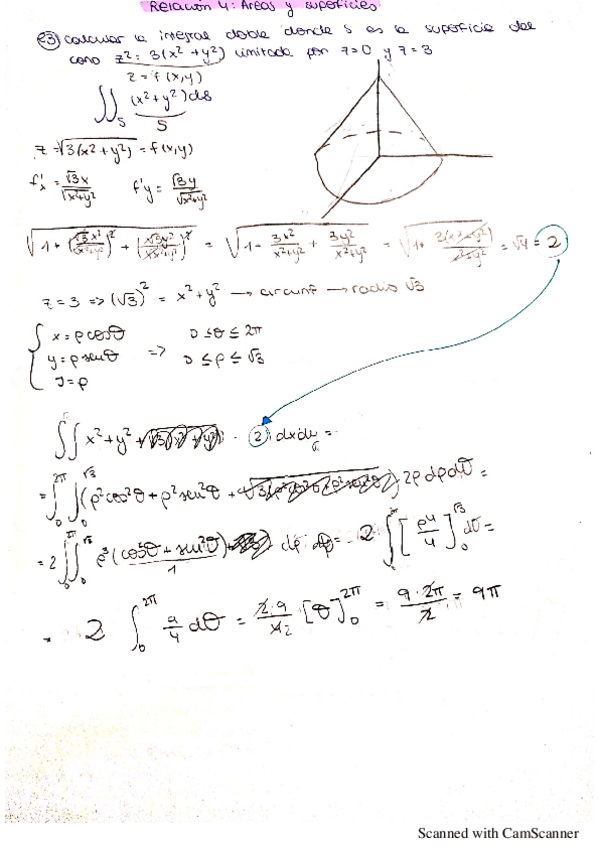 Relación 4: Areas y superficies
e3) calcular la integral doble donde S es la superficie del
cono z² = 3(x² + y²) limitada por z=0 y z=3
z = f(x,y)
∬_S (x² + y²) ds
S
z = √3(x²+y²) = f(x,y)
f'x = √3x / √x²+y²   f'y = √3y / √x²+y²
= √1+ 3x²/x²+y² + 3y²/x²+y² = = √4 = 2
z = 3 => (√3)² = x² + y² → circunf → radio √3
x = ρcosθ   0 ≤ θ ≤ 2π
y = ρsenθ => 0 ≤ ρ ≤ √3
J = ρ
∬ x² + y² · 2 dxdy =
= ∫₀^2π ∫₀^√3 (ρ²cos²θ + ρ²sen²θ 2ρ dρdθ =
= 2 ∫∫₀^√3 ρ³ (cos²θ + sen²θ) dρ = 2 ∫₀ [ρ⁴/4]₀^√3 dθ =
1
= 2 ∫₀^2π 9/4 dθ = 2·9/42 [θ]₀^2π = 9·2π/2 = 9π
Scanned with CamScanner